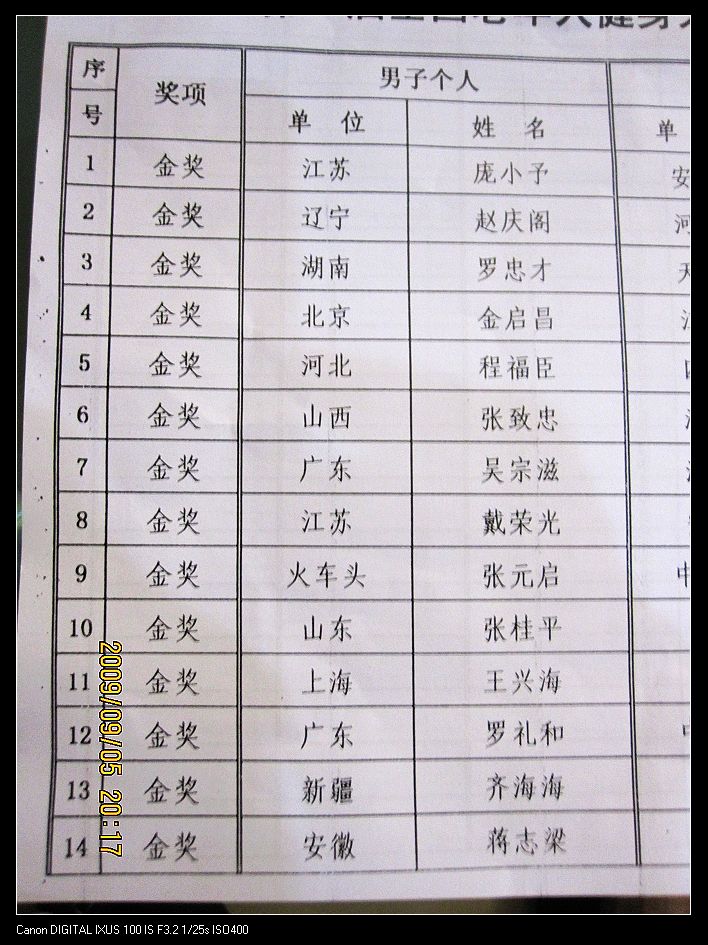 序号 奖项 男子个人
单位 姓名 单
1 金奖 江苏 庞小予 安
2 金奖 辽宁 赵庆阁 河
3 金奖 湖南 罗忠才 天
4 金奖 北京 金启昌
5 金奖 河北 程福臣
6 金奖 山西 张致忠
7 金奖 广东 吴宗滋
8 金奖 江苏 戴荣光
9 金奖 火车头 张元启 中
10 金奖 山东 张桂平
11 金奖 上海 王兴海
12 金奖 广东 罗礼和
13 金奖 新疆 齐海海
14 金奖 安徽 蒋志梁
2009/09/05 20:17
Canon DIGITAL IXUS 100 IS F3.2 1/25s ISO400